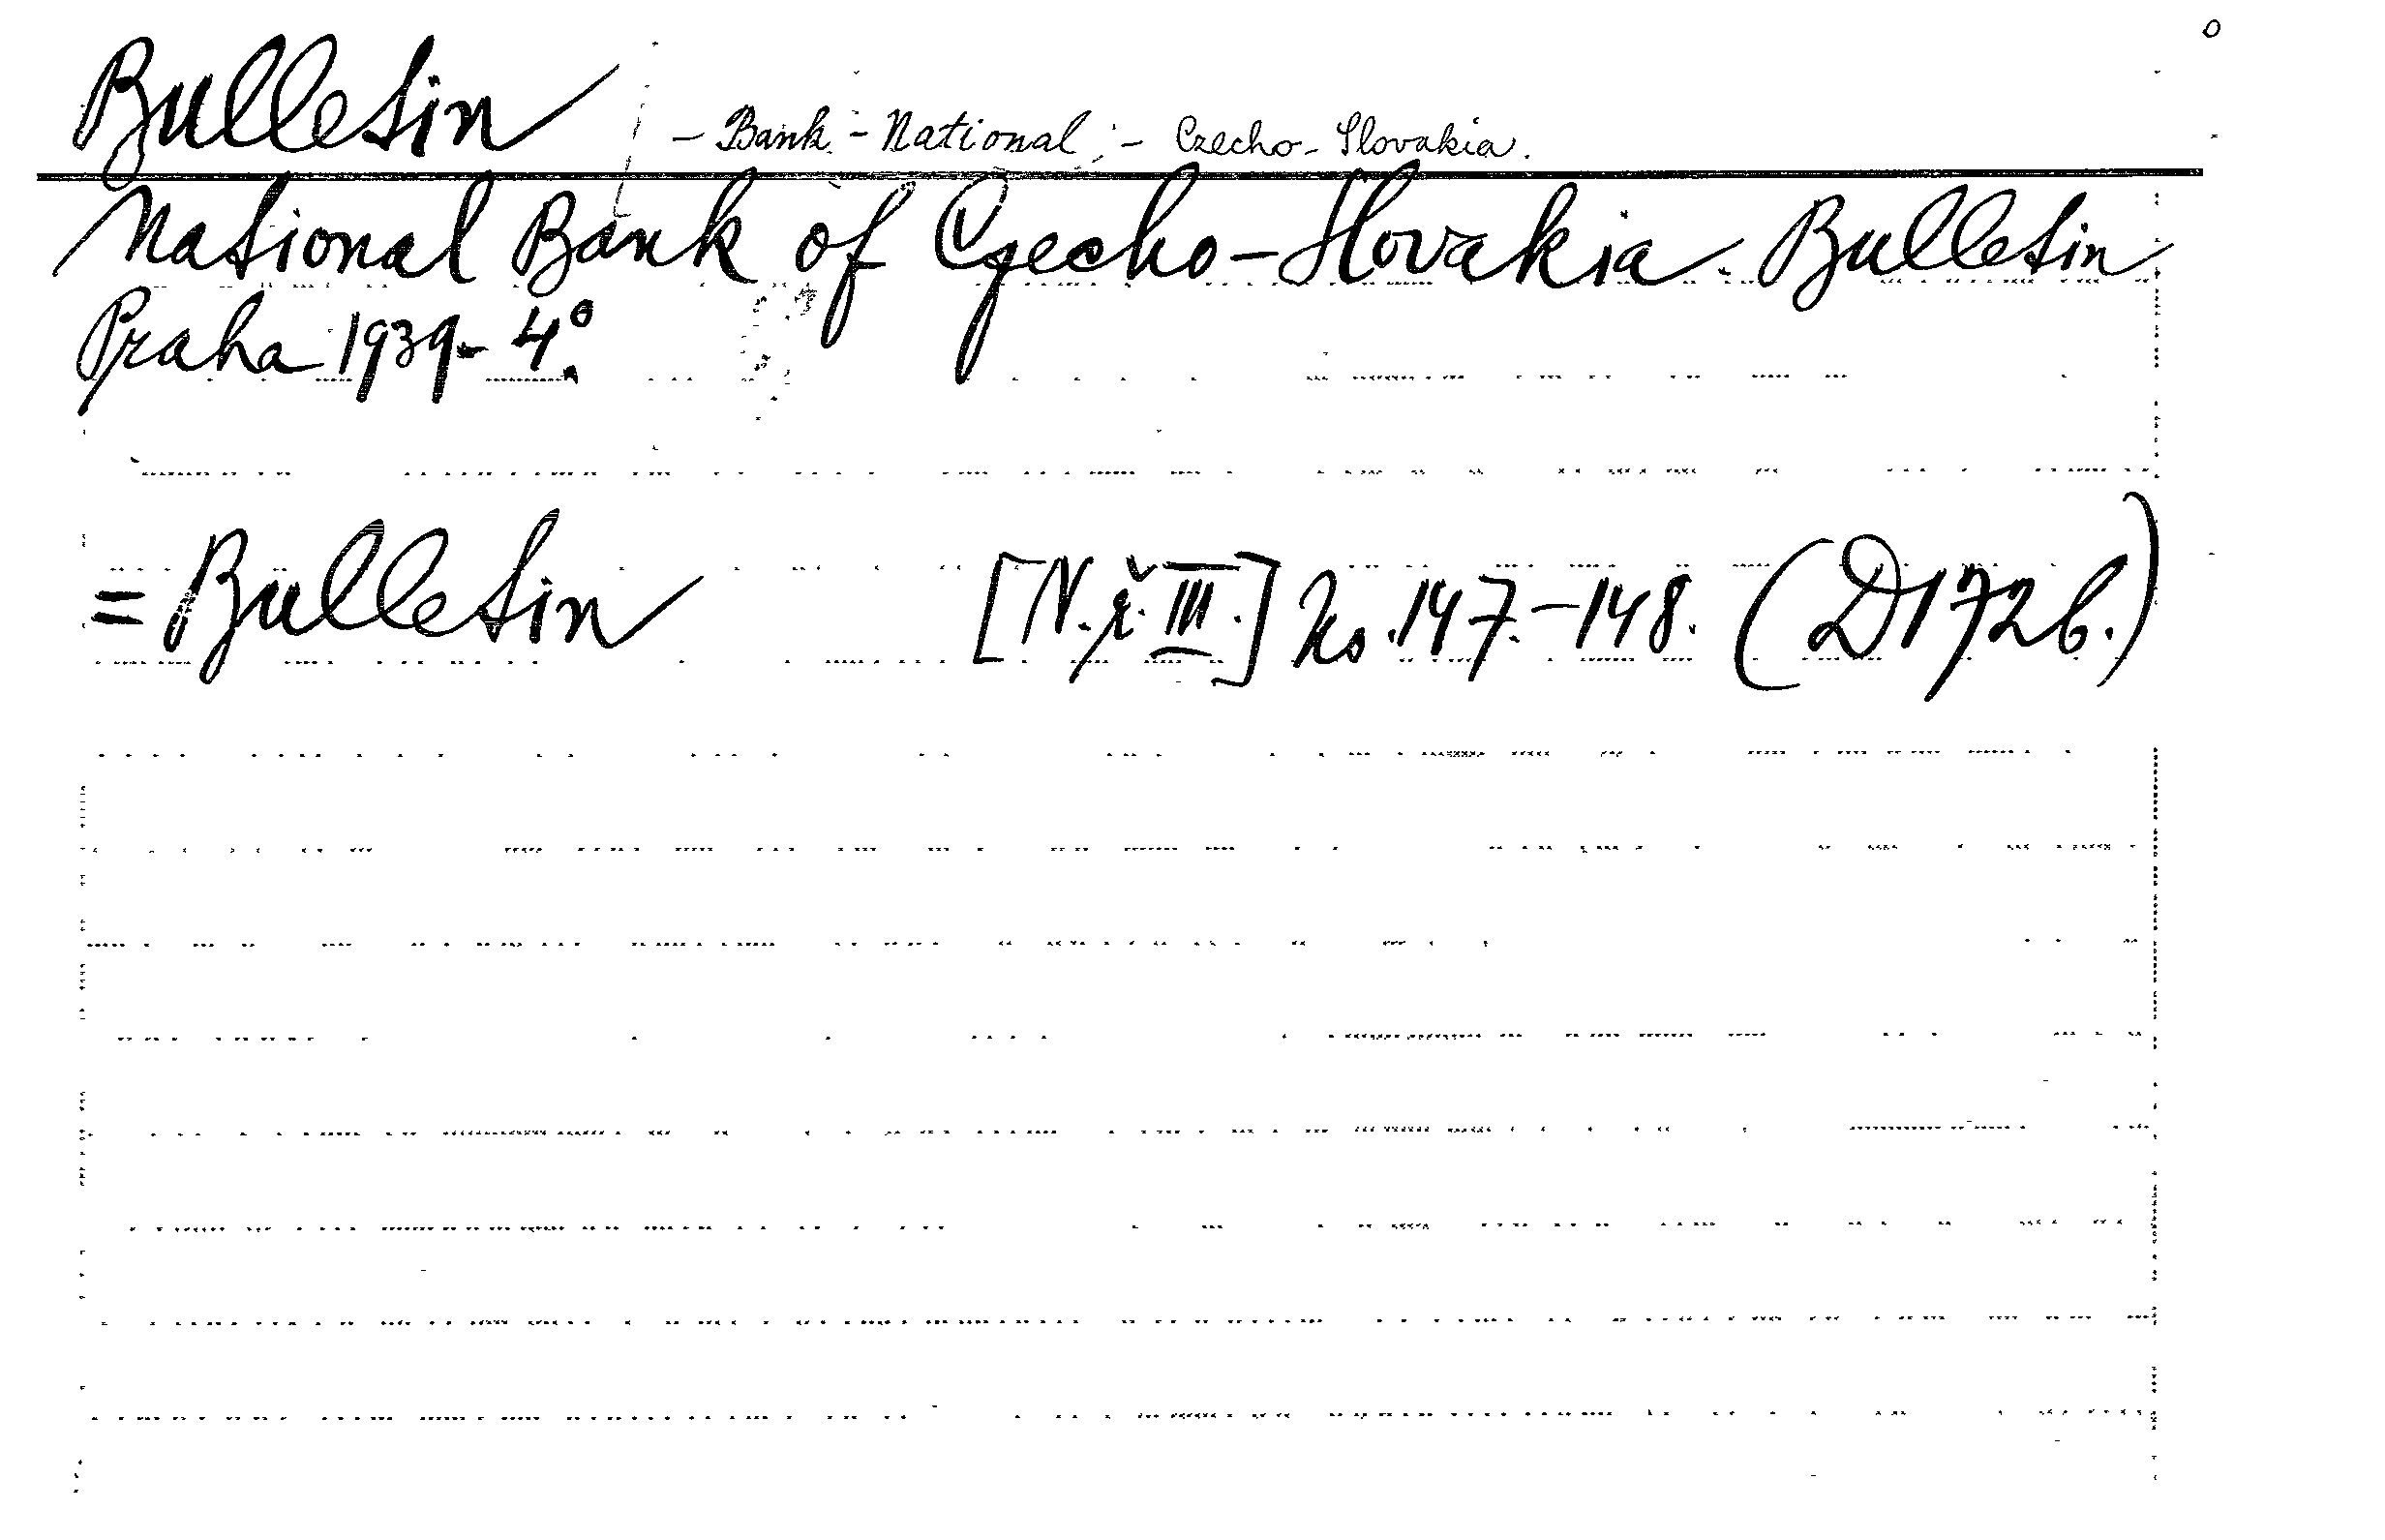 Bulletin - Bank - National - Czecho-Slovakia.
National Bank of Czecho-Slovakia. Bulletin
Praha 1939- 4°.
= Bulletin [N.ř. III.] ks. 147.-148. (D172b.)